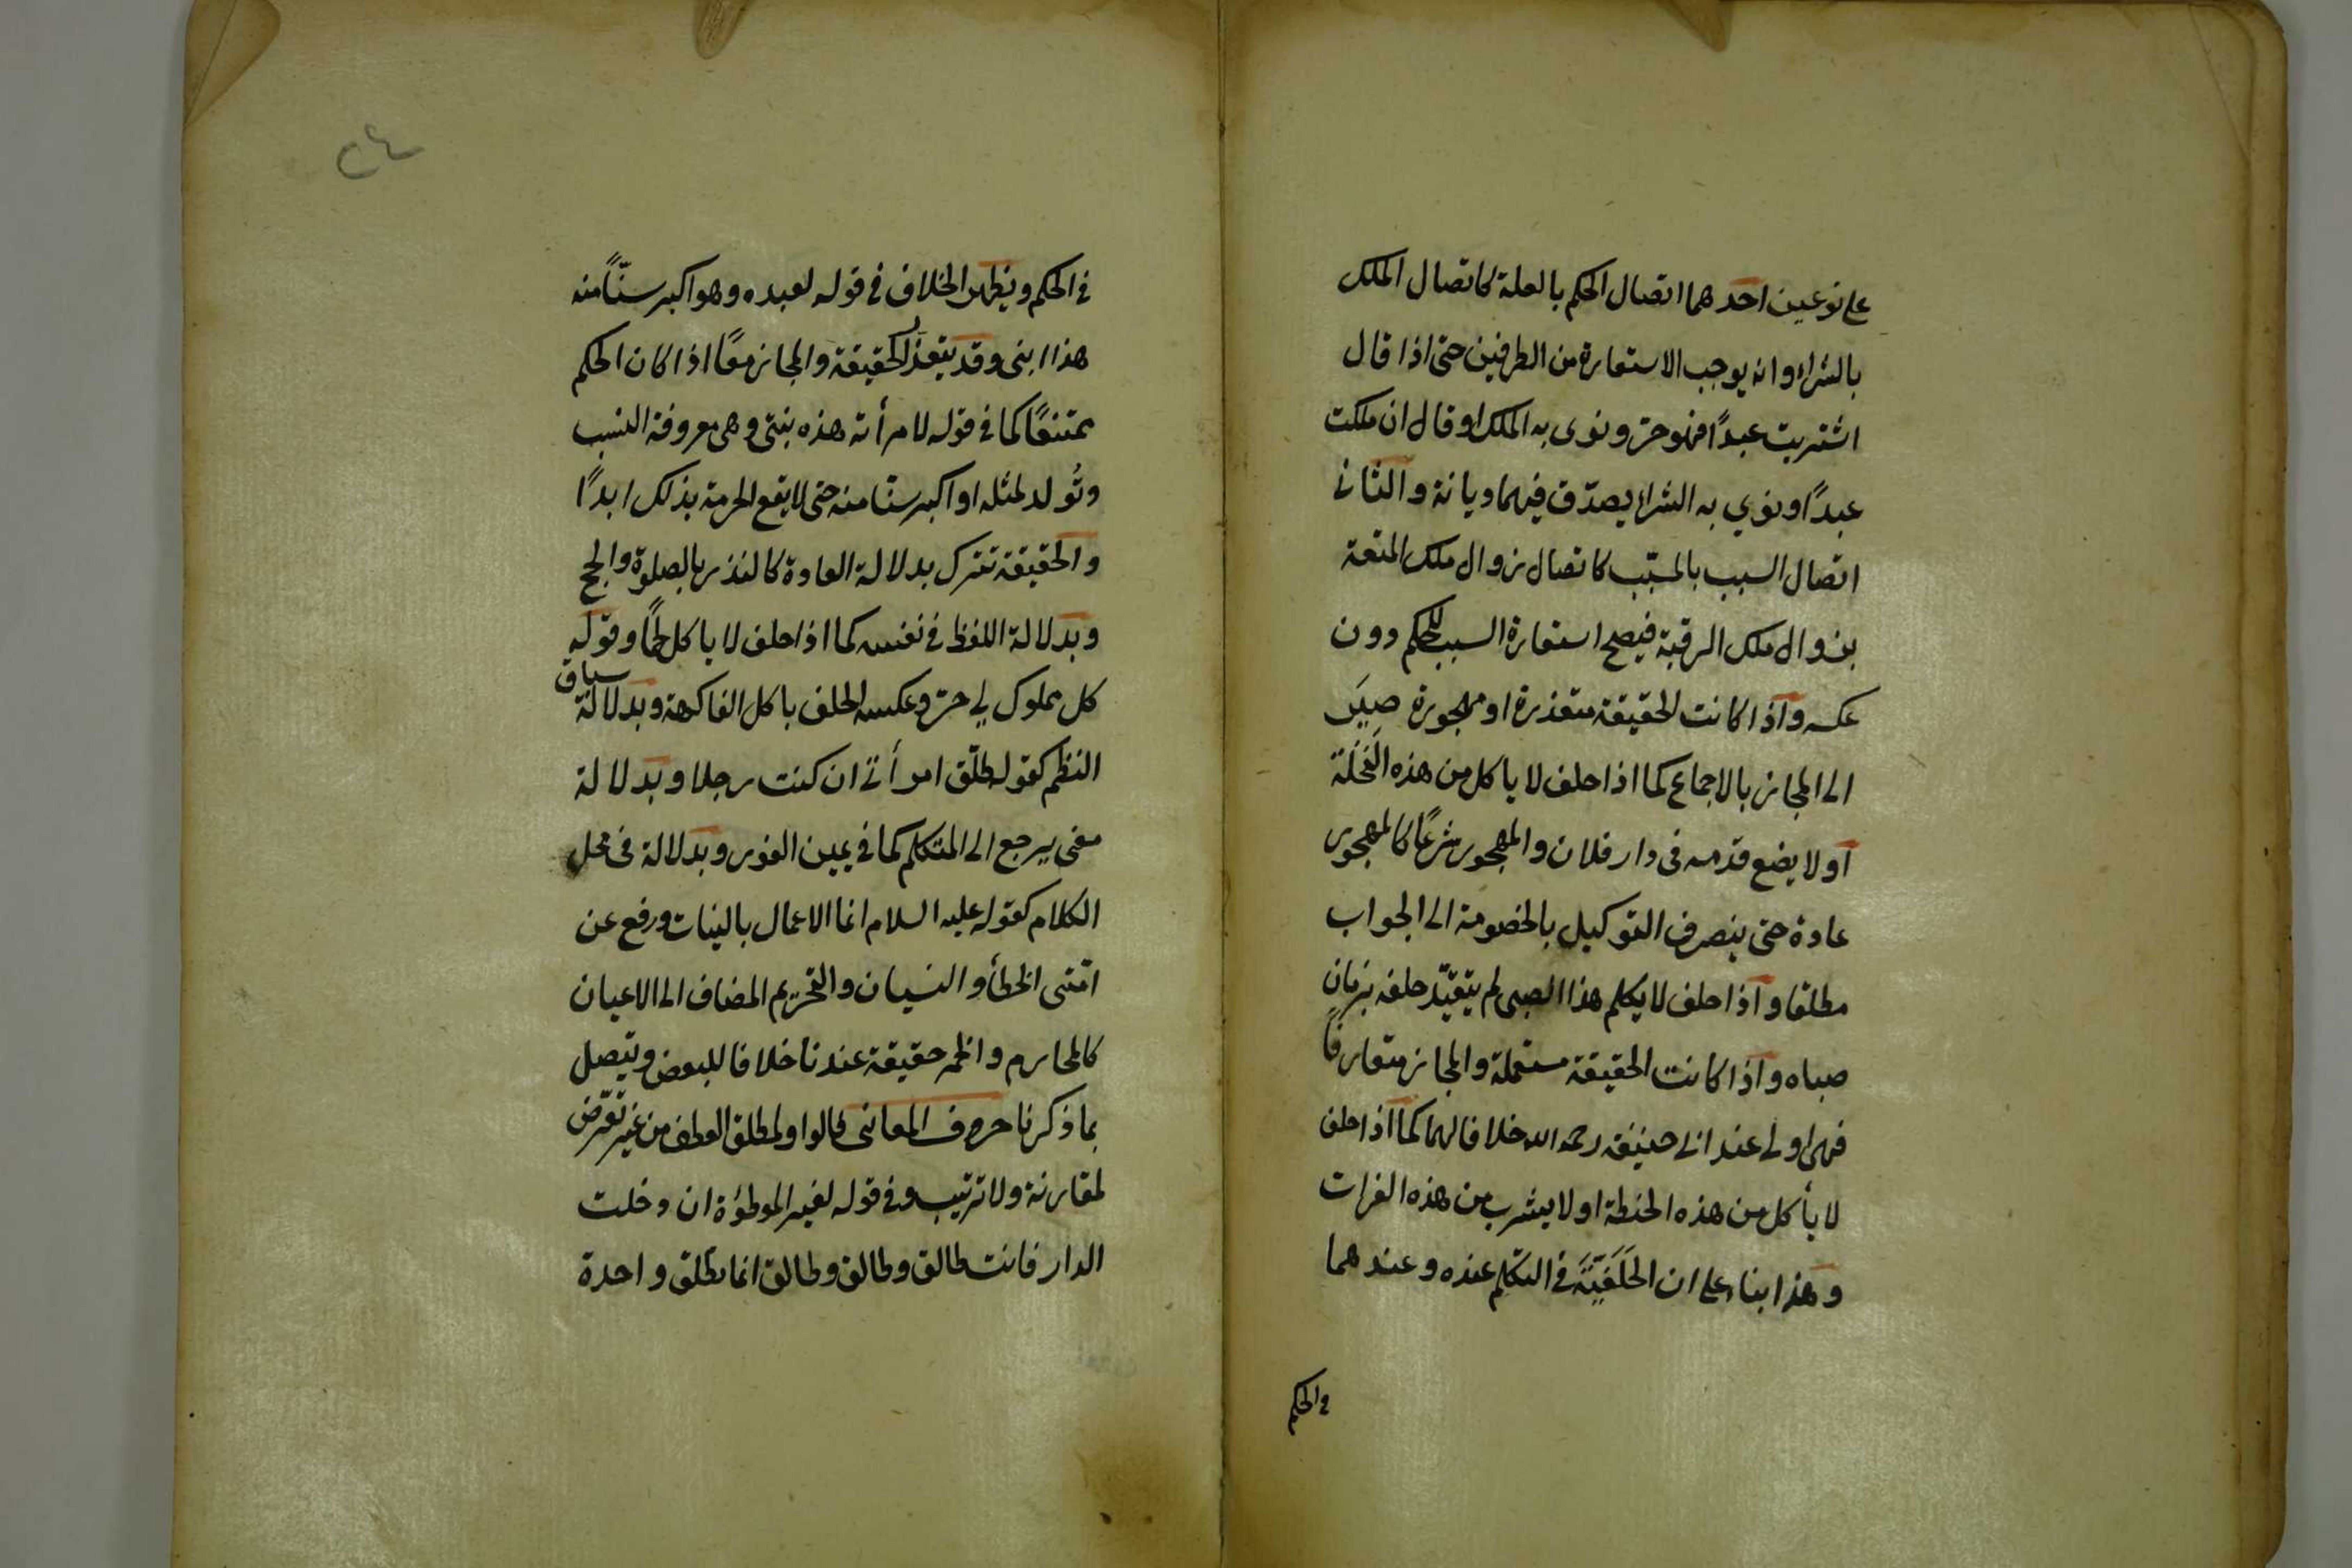 على نوعين احدهما اتصال الحكم بالعلة كاتصال الملك
بالشراء وانه يوجب الاستعارة من الطرفين حتى اذا قال
اشتريت عبدًا فهو حرّ ونوى به الملك او قال ان ملكت
عبدًا ونوي به الشراء يصدّق فيهما ديانة والثاني
اتصال السبب بالمسبّب كاتصال زوال ملك المتعة
بزوال ملك الرقبة فيصح استعارة السبب للحكم دون
عكسه واذا كانت الحقيقة متعذرة او مهجورة صيَر
الى المجاز بالاجماع كما اذا حلف لا ياكل من هذه النَخَلَة
او لا يضع قدمه فى دار فلان والمهجور شرعًا كالمهجور
عادة حتى ينصرف التوكيل بالخصومة الى الجواب
مطلقا واذا حلف لا يكلم هذا الصبى لم يتقيّد حلفه بزمان
صباه واذا كانت الحقيقة مستعملة والمجاز متعارفًا
فهى اولى عند ابى حنيفة رحمه الله خلافا لهما كما اذا حلف
لا يأكل من هذه الحنطة او لا يشرب من هذه الفرات
وهذا بناء على ان الخَلَفيّةَ في التكلم عنده وعندهما
في الحكم
٢٤
في الحكم ويظهر الخلاف في قوله لعبده وهو اكبر سنّاً منه
هذا ابنى وقد يتعذر الحقيقة والمجاز معًا اذا كان الحكم
ممتنعًا كما في قوله لامرأته هذه بنتى وهى معروفة النسب
وتُولد لمثله او اكبر سنّا منه حتى لا يقع الحرمة بذلك ابدًا
والحقيقة تترك بدلالة العادة كالنذر بالصلوة والحج
وبدلالة اللفظ في نفسه كما اذا حلف لا ياكل لحمًا وقوله
كل مملوك لي حرّ وعكسه الحلف باكل الفاكهة وبدلالة سياق
النظم كقوله طلّق امرأتى ان كنت رجلا وبدلالة
معنى يرجع الى المتكلم كما في يمين الفور وبدلالة فى محل
الكلام كقوله عليه السلام انما الاعمال بالنيات ورفع عن
امّتى الخطأ والنسيان والتحريم المضاف الى الاعيان
كالمحارم والخمر حقيقة عندنا خلافا للبعض ويتصل
بما ذكرنا حروف المعانى فالواو لمطلق العطف من غير تعرّض
لمقارنة ولا ترتيب وفي قوله لغير الموطؤة ان دخلت
الدار فانت طالق وطالق وطالق انما تطلق واحدة